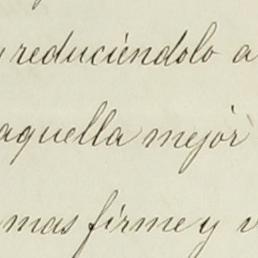 y reduciéndolo a
aquella mejór
mas firme y v